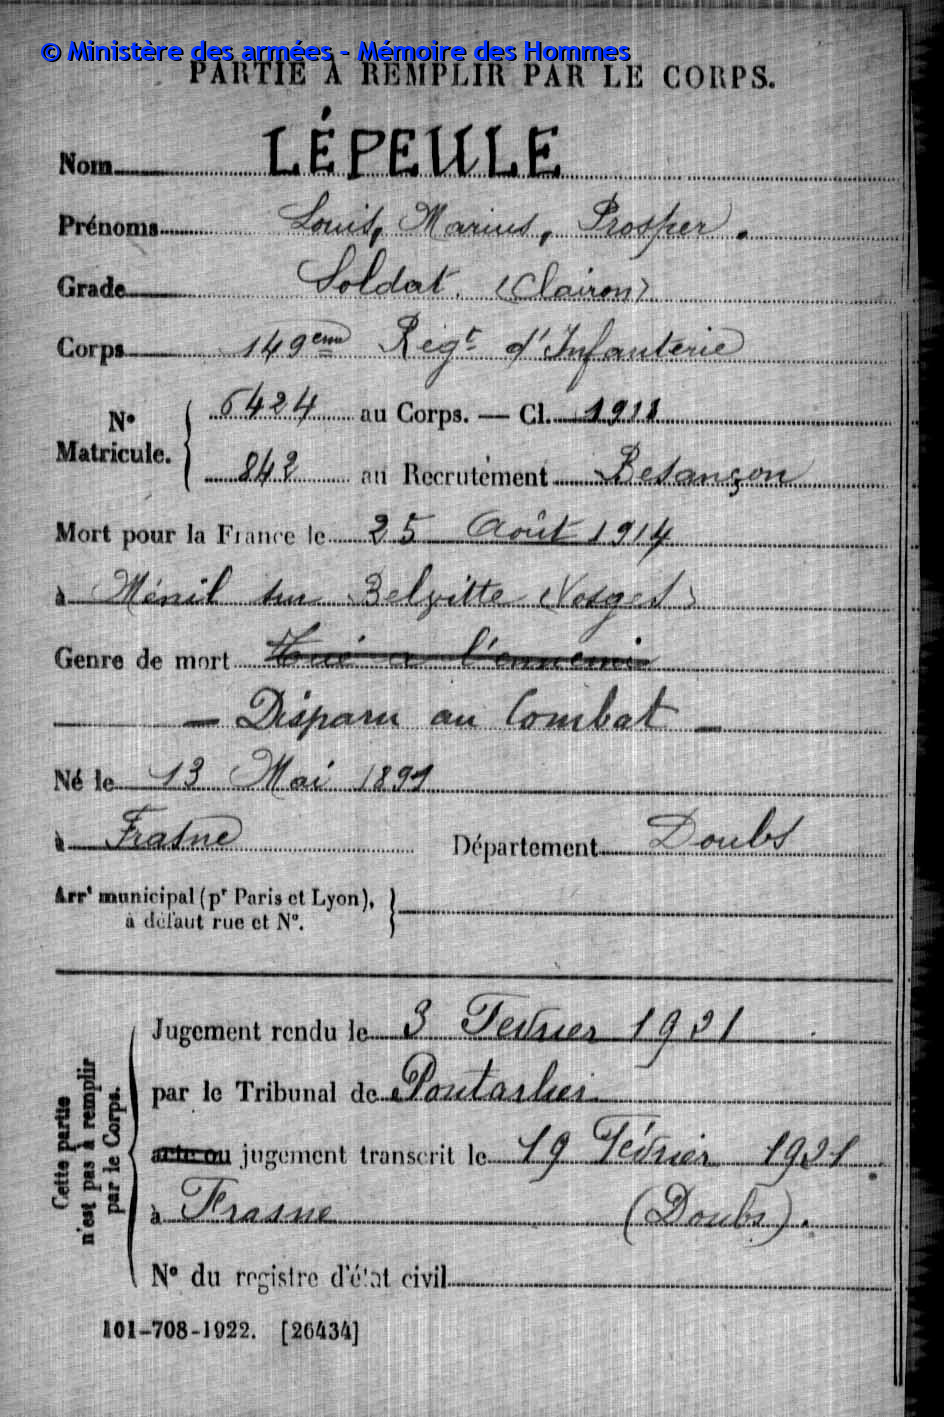 © Ministère des armées - Mémoire des Hommes
PARTIE À REMPLIR PAR LE CORPS.
Nom LÉPEULE
Prénoms Louis, Marius, Prosper.
Grade Soldat (Clairon)
Corps 149eme Régt d'Infanterie
No Matricule. { 6424 au Corps. — Cl. 1911
842 au Recrutement Besançon
Mort pour la France le 25 Août 1914
à Ménil sur Belvitte (Vosges)
Genre de mort Tué à l'ennemi
— Disparu au Combat —
Né le 13 Mai 1891
à Frasne Département Doubs
Arrt municipal (pr Paris et Lyon),
à défaut rue et No. }
Cette partie n'est pas à remplir par le Corps. {
Jugement rendu le 3 Fevrier 1921
par le Tribunal de Pontarlier
acte ou jugement transcrit le 19 Février 1921.
à Frasne (Doubs).
No du registre d'état civil
101-708-1922. [26434]